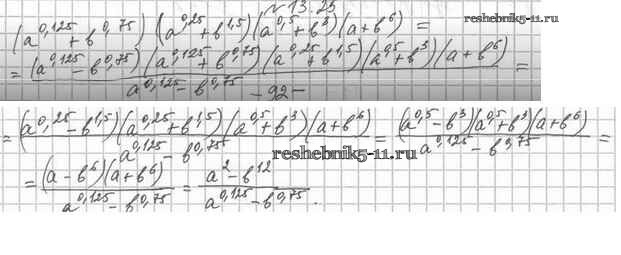 N 13.25
(a^0,125 + b^0,75) (a^0,25 + b^1,5)(a^0,5 + b^3)(a+b^6) =
reshebnik5-11.ru
= (a^0,125 - b^0,75)(a^0,125 + b^0,75)(a^0,25 + b^1,5)(a^0,5 + b^3)(a+b^6) / a^0,125 - b^0,75 =
-92-
= (a^0,25 - b^1,5)(a^0,25 + b^1,5)(a^0,5 + b^3)(a+b^6) / a^0,125 - b^0,75 = (a^0,5 - b^3)(a^0,5 + b^3)(a+b^6) / a^0,125 - b^0,75 =
reshebnik5-11.ru
= (a - b^6)(a + b^6) / a^0,125 - b^0,75 = a^2 - b^12 / a^0,125 - b^0,75 .